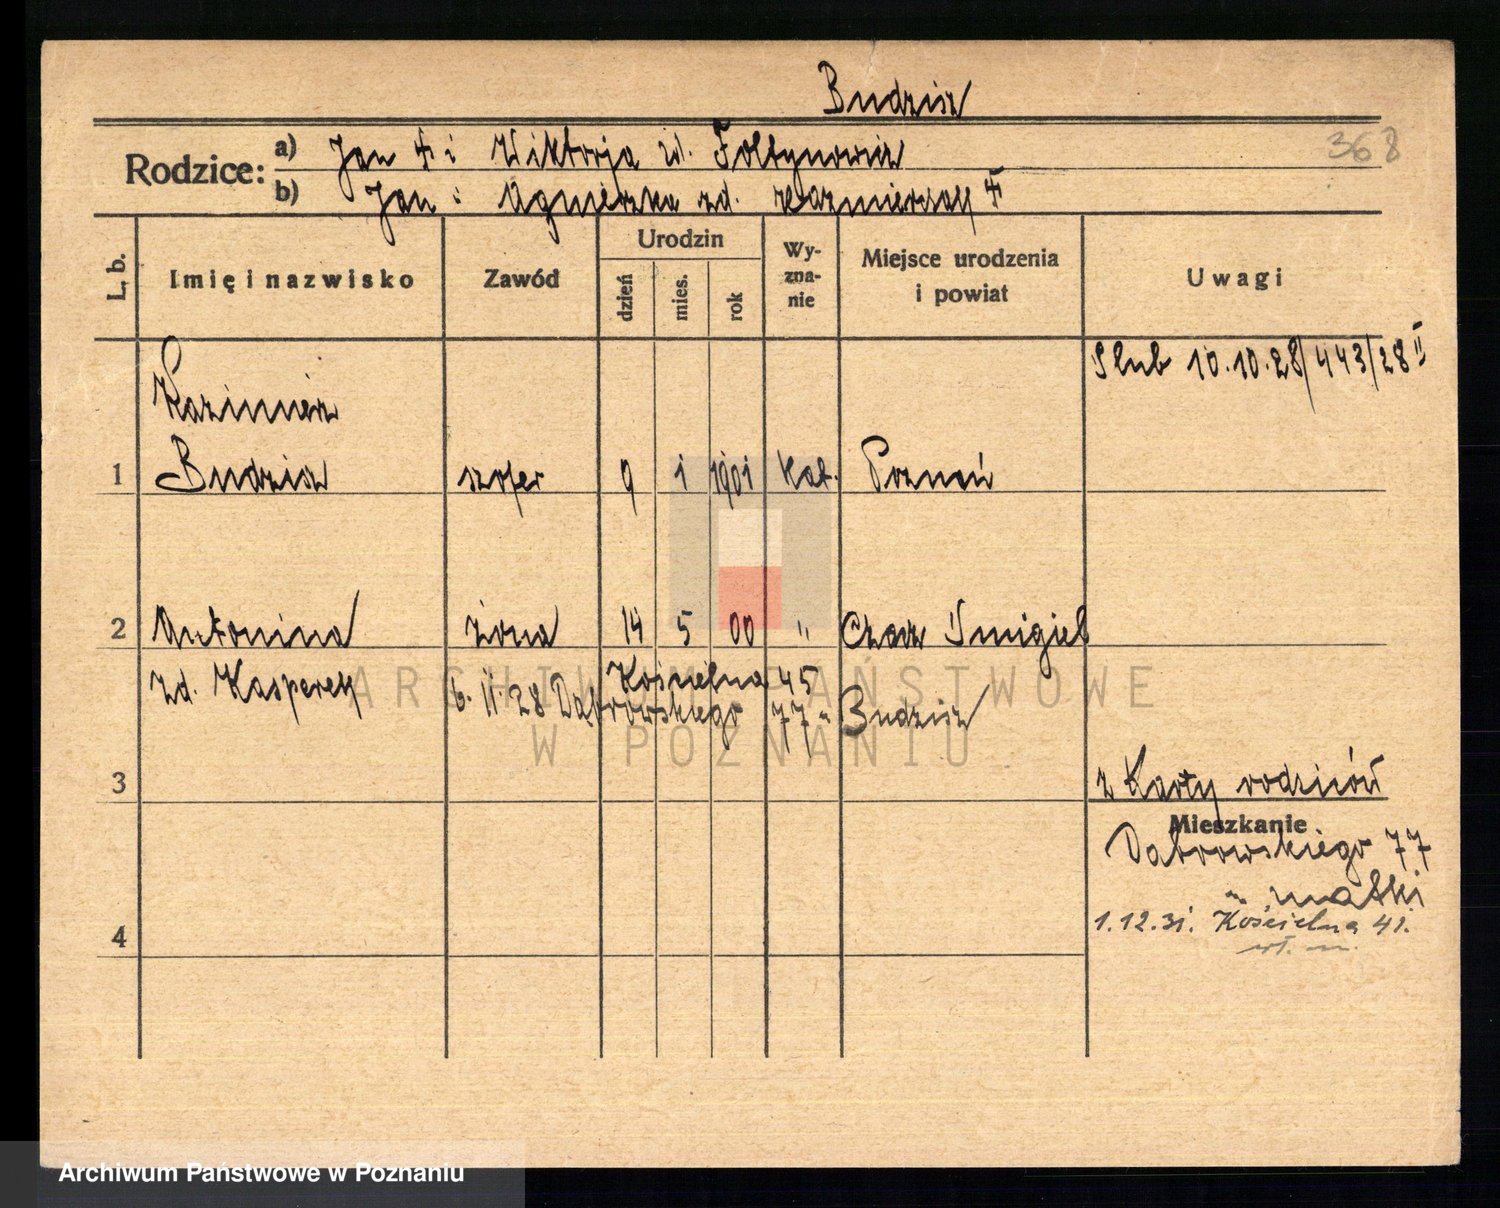 Budzisz
368
Rodzice: a) Jan ☨ i Wiktorja zd. Foltynowicz
b) Jan i Agnieszka zd. Kaźmierczak ☨
L. b.
Imię i nazwisko
Zawód
Urodzin
dzień
mies.
rok
Wy-
zna-
nie
Miejsce urodzenia
i powiat
Uwagi
Ślub 10.10.28/443/28 II
Kazimierz
1 Budzisz szofer 9 1 1901 kat. Poznań
2 Antonina żona 14 5 00 " Czacz Śmigiel
zd. Kasperek
Kościelna 45
6.11.28 Dąbrowskiego 77 u Budzisz
ARCHIWUM PAŃSTWOWE
W POZNANIU
3
z Karty rodziców
Mieszkanie
Dąbrowskiego 77
u matki
4
1.12.31. Kościelna 41.
wł. m.
Archiwum Państwowe w Poznaniu